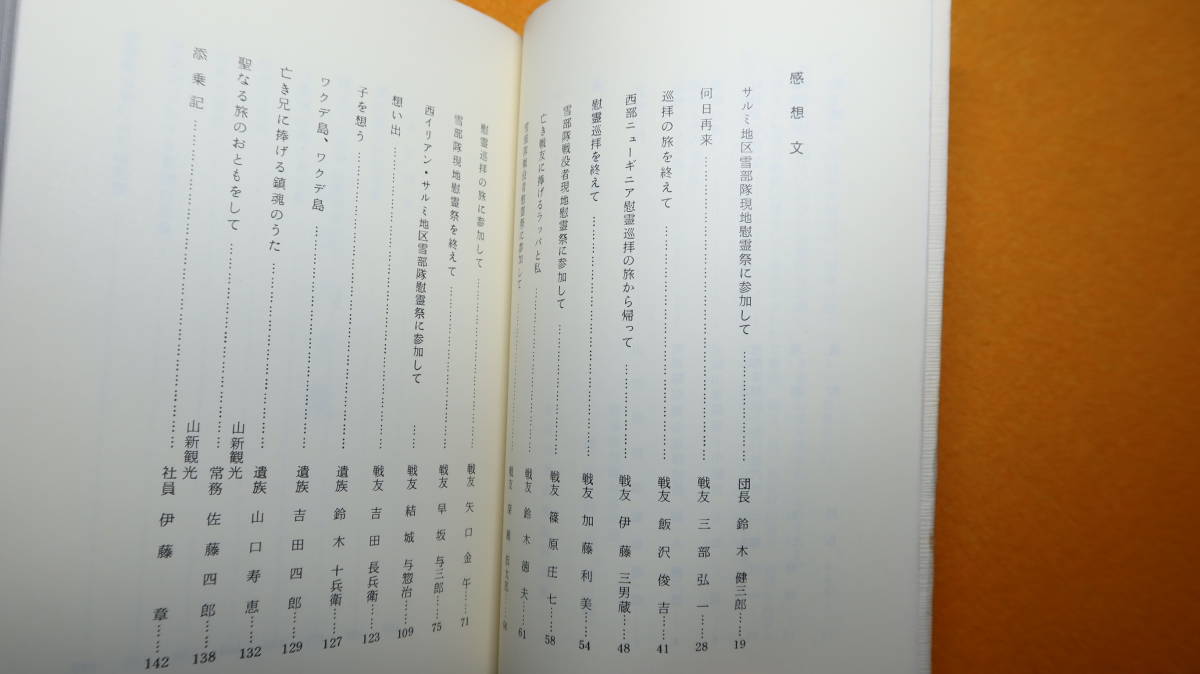 感想文
サルミ地区雪部隊現地慰霊祭に参加して……………………団長 鈴木健三郎……19
何日再来……………………戦友 三部弘一……28
巡拝の旅を終えて……………………戦友 飯沢俊吉……41
西部ニューギニア慰霊巡拝の旅から帰って……………………戦友 伊藤三男蔵……48
慰霊巡拝を終えて……………………戦友 加藤利美……54
雪部隊戦没者現地慰霊祭に参加して……………………戦友 篠原庄七……58
亡き戦友に捧げるラッパと私……………………戦友 鈴木徳夫……61
雪部隊戦没者慰霊祭に参加して……………………戦友
慰霊巡拝の旅に参加して……………………戦友 矢口金午……71
雪部隊現地慰霊祭を終えて……………………戦友 早坂与三郎……75
西イリアン・サルミ地区雪部隊慰霊祭に参加して……戦友 結城与惣治……109
想い出……………………戦友 吉田長兵衛……123
子を想う……………………遺族 鈴木十兵衛……127
ワクデ島、ワクデ島……………………遺族 吉田四郎……129
亡き兄に捧げる鎮魂のうた……………………遺族 山口寿恵……132
聖なる旅のおともをして……………………山新観光常務 佐藤四郎……138
添乗記……………………山新観光社員 伊藤章……142